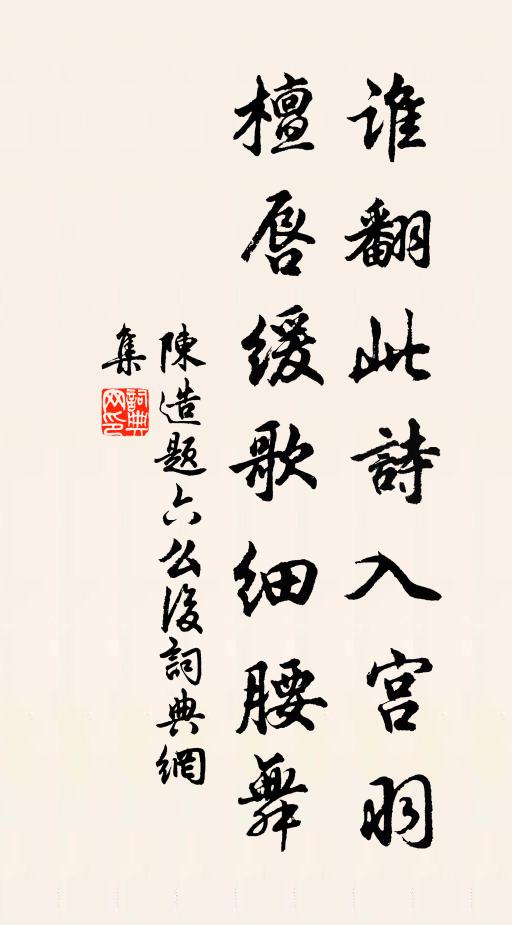 谁翻此詩入宫羽
檀唇緩歌細腰舞
陳造題六么後詞典網
集
詞典网印